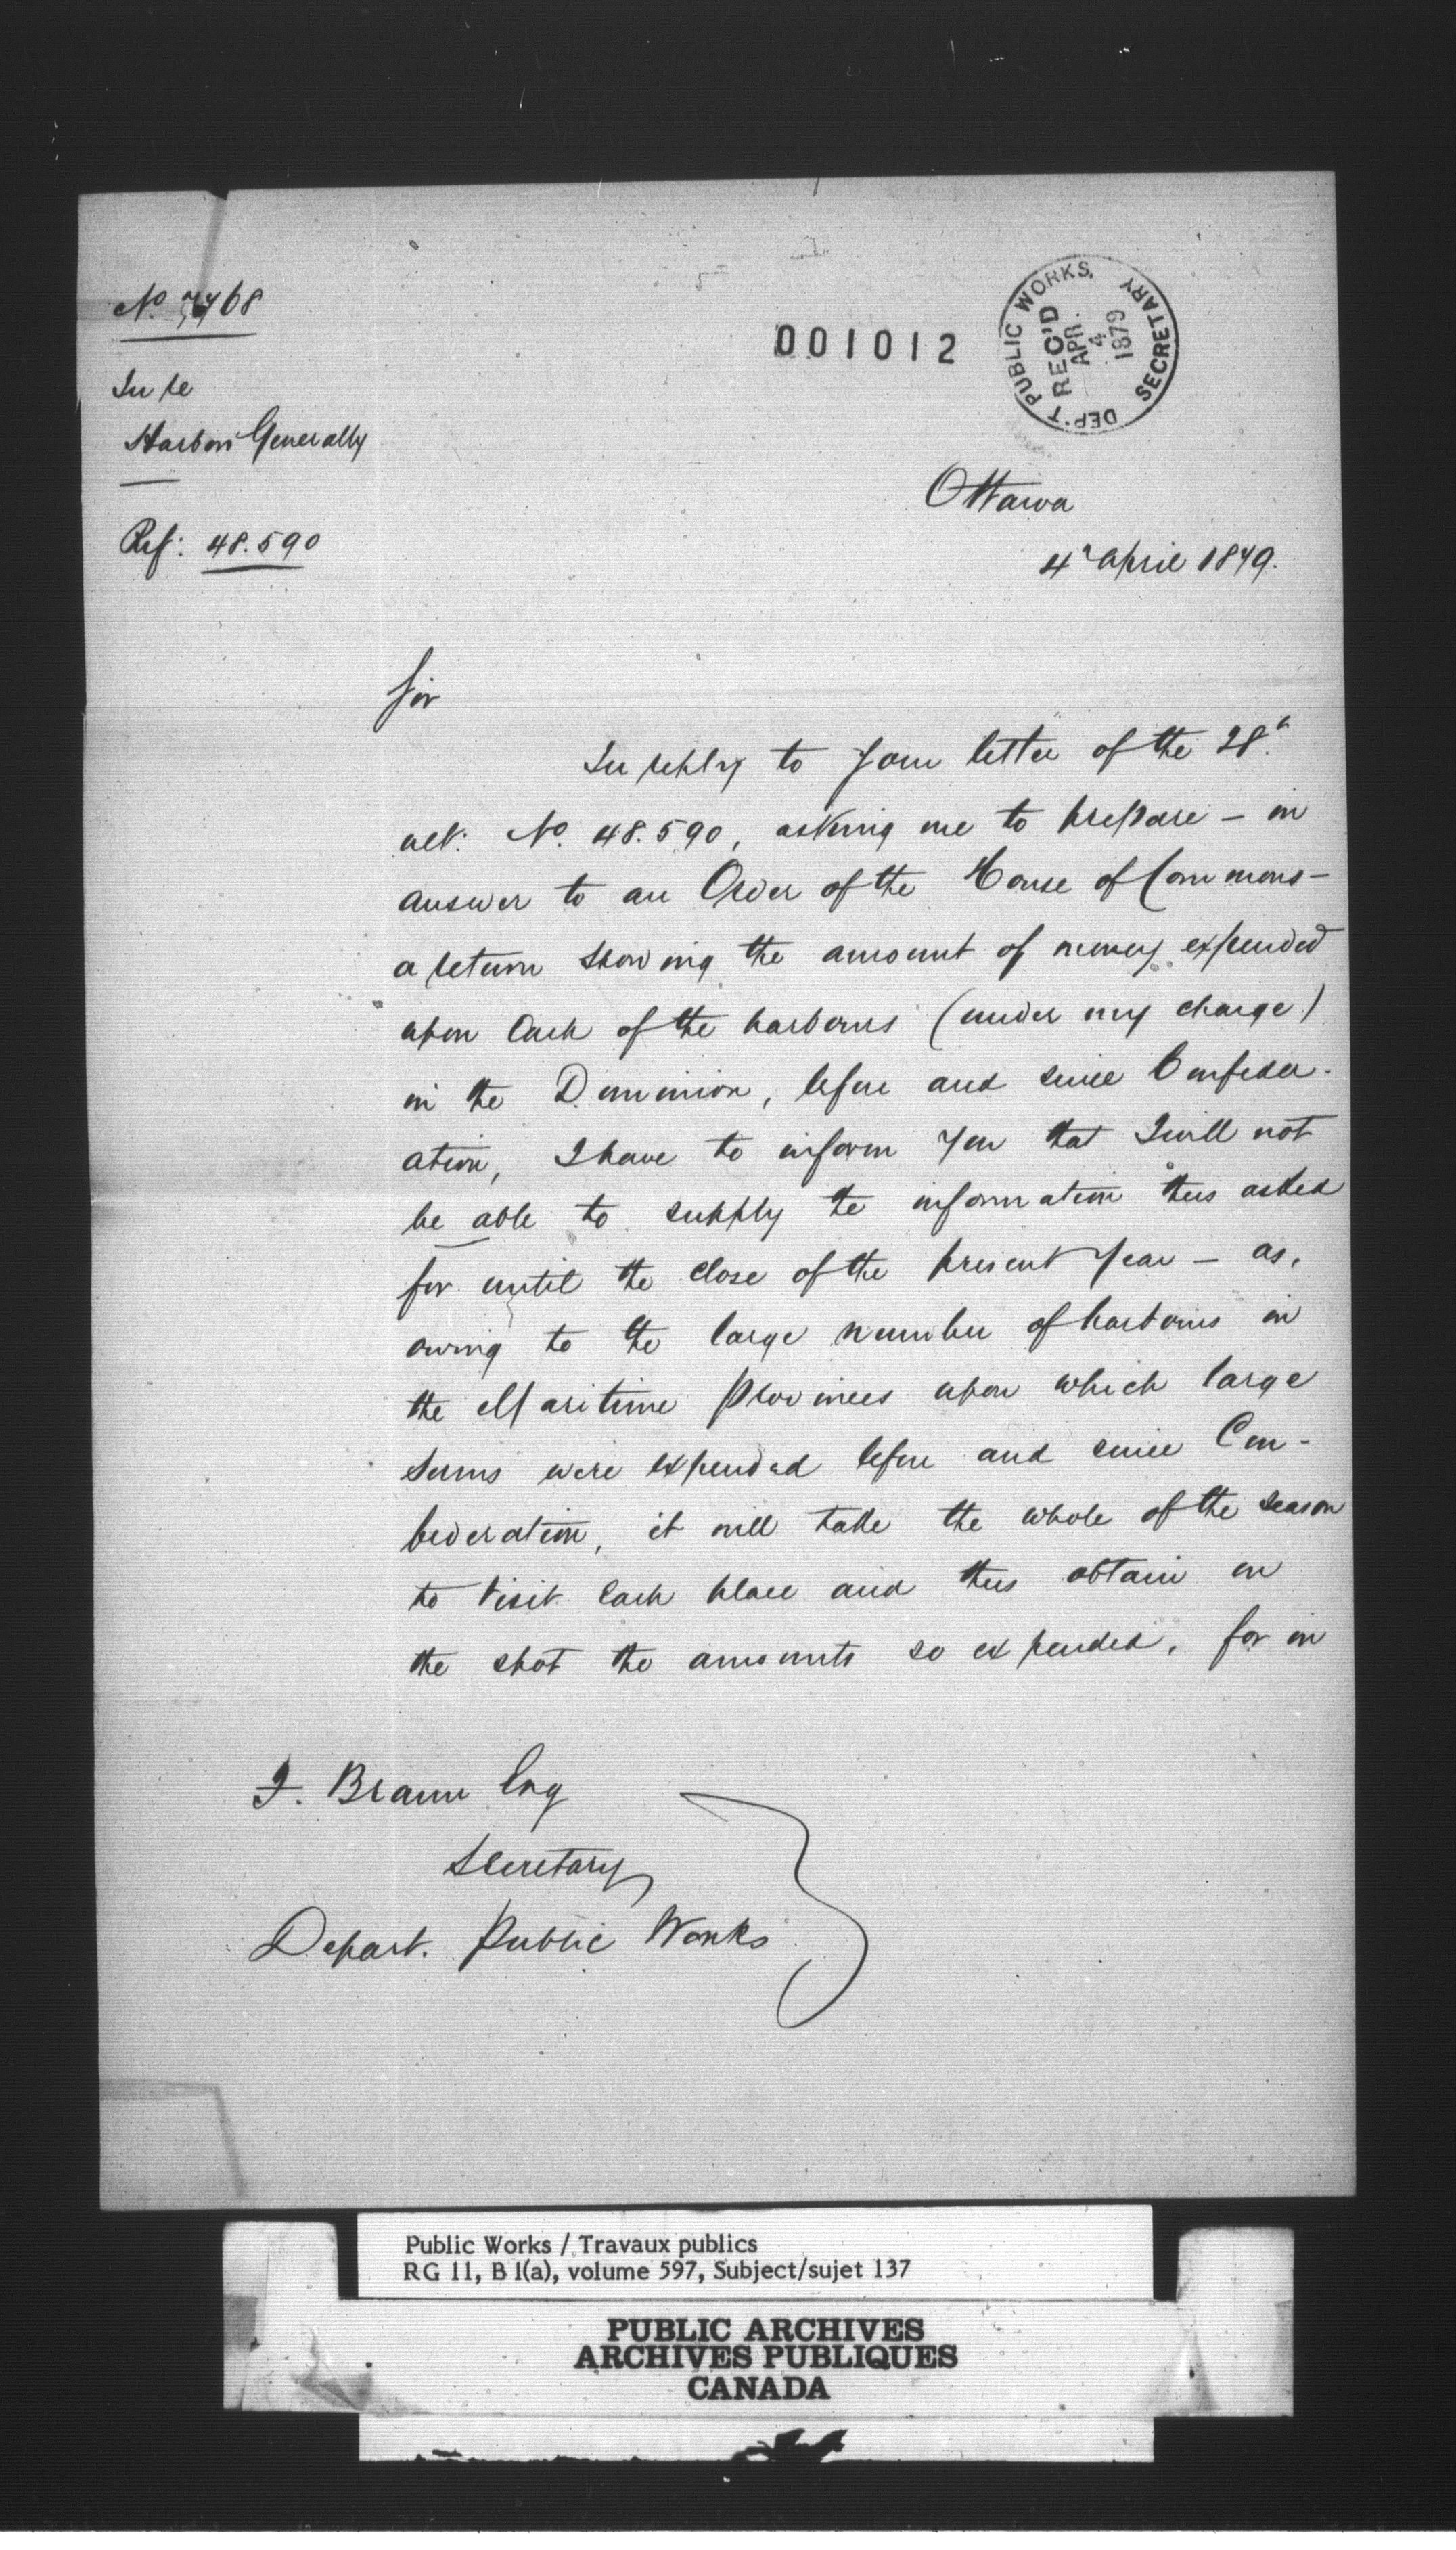 No. 7768
In re
Harbors Generally
Ref: 48.590
001012
DEP'T PUBLIC WORKS,
REC'D
APR.
4
1879
SECRETARY
Ottawa
4th April 1879.
Sir
In reply to your letter of the 28th
ult: No. 48.590, asking me to prepare — in
answer to an Order of the House of Commons —
a return showing the amount of money expended
upon each of the harbours (under my charge)
in the Dominion, before and since Confeder-
ation, I have to inform you that I will not
be able to supply the information thus asked
for until the close of the present year — as,
owing to the large number of harbours in
the Maritime Provinces upon which large
sums were expended before and since Con-
federation, it will take the whole of the season
to visit each place and thus obtain on
the spot the amounts so expended, for in
F. Braun Esq
Secretary
Depart. Public Works
Public Works / Travaux publics
RG 11, B 1(a), volume 597, Subject/sujet 137
PUBLIC ARCHIVES
ARCHIVES PUBLIQUES
CANADA